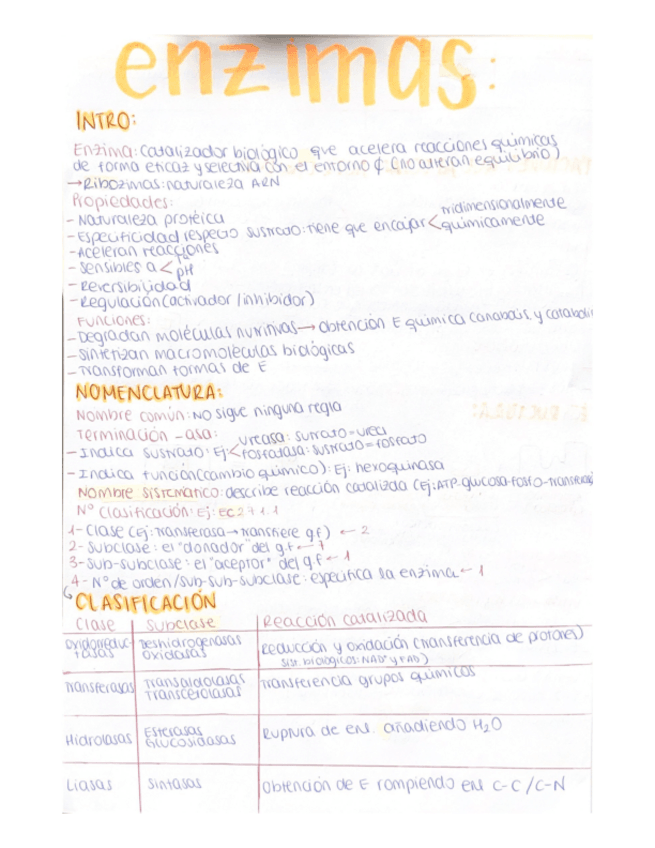 enzimas:
INTRO:
Enzima: catalizador biológico que acelera reacciones químicas
de forma eficaz y selectiva con el entorno ¢ (no alteran equilibrio)
→Ribozimas: naturaleza ARN
Propiedades:
- Naturaleza protéica
- Especificidad respecto sustrato: tiene que encajar < tridimensionalmente
químicamente
- Aceleran reacciones
- Sensibles a <
pH
- Reversibilidad
- Regulación (activador / inhibidor)
Funciones:
- Degradan moléculas nutritivas → obtención E química (anabolis. y cataboli
- Sintetizan macromoléculas biológicas
- Transforman formas de E
NOMENCLATURA:
Nombre común: NO sigue ninguna regla
Terminación -asa:
- Indica sustrato: Ej: < ureasa: sutrato=urea
fosfatasa: sustrato=fosfato
- Indica función (cambio químico): Ej: hexoquinasa
Nombre sistemático: describe reacción catalizda (Ej: ATP-glucosa-fosfo-transferas
Nº Clasificación: Ej: EC 2 7 1.1
1- Clase (Ej: Transferasa → transfiere g.f) ← 2
2- Subclase: el "donador" del g.f ← 7
3- Sub-subclase: el "aceptor" del g.f ← 1
4- Nº de orden/sub-sub-subclase: especifica la enzima ← 1
CLASIFICACIÓN
Clase Subclase Reacción catalizada
Oxidorreduc-
tasas Deshidrogenasas
Oxidasas Reducción y oxidación (transferencia de protones)
Sist. biológicos: NAD⁺ y FAD)
Transferasas Transaldolasas
Transcetolasas Transferencia grupos químicos
Hidrolasas Esterasas
Glucosidasas Ruptura de enl. añadiendo H₂O
Liasas Sintasas Obtención de E rompiendo enl C-C / C-N